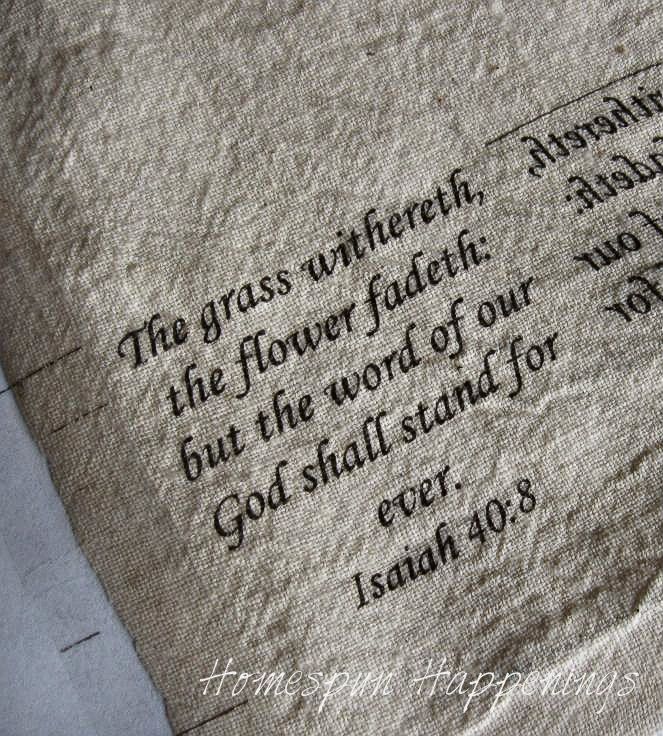 The grass withereth,
the flower fadeth:
but the word of our
God shall stand for
ever.
Isaiah 40:8
withereth,
fadeth:
our
for
Homespun Happenings